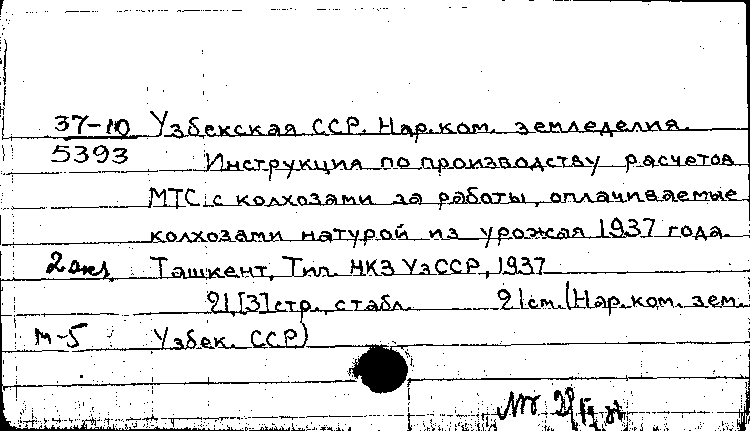 37-10 Узбекская ССР. Нар.ком. земледелия.
5393 Инструкция по производству расчетов
МТС с колхозами за работы, оплачиваемые
колхозами натурой из урожая 1937 года.
2 экз. Ташкент, Тип. НКЗ УзССР, 1937
21,[3]стр., с табл. 21см. (Нар.ком. зем.
м-5 Узбек. ССР)